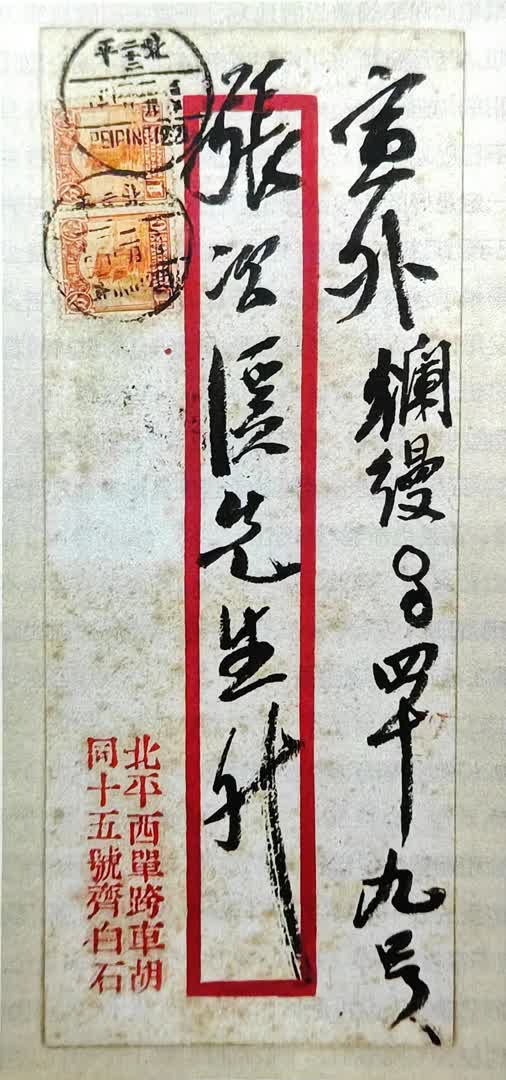 宣外爛縵四十九号
張次溪先生升
北平
二十三
PEIPING
北平西單跨車胡
同十五號齊白石